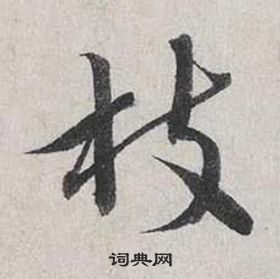 枝
词典网